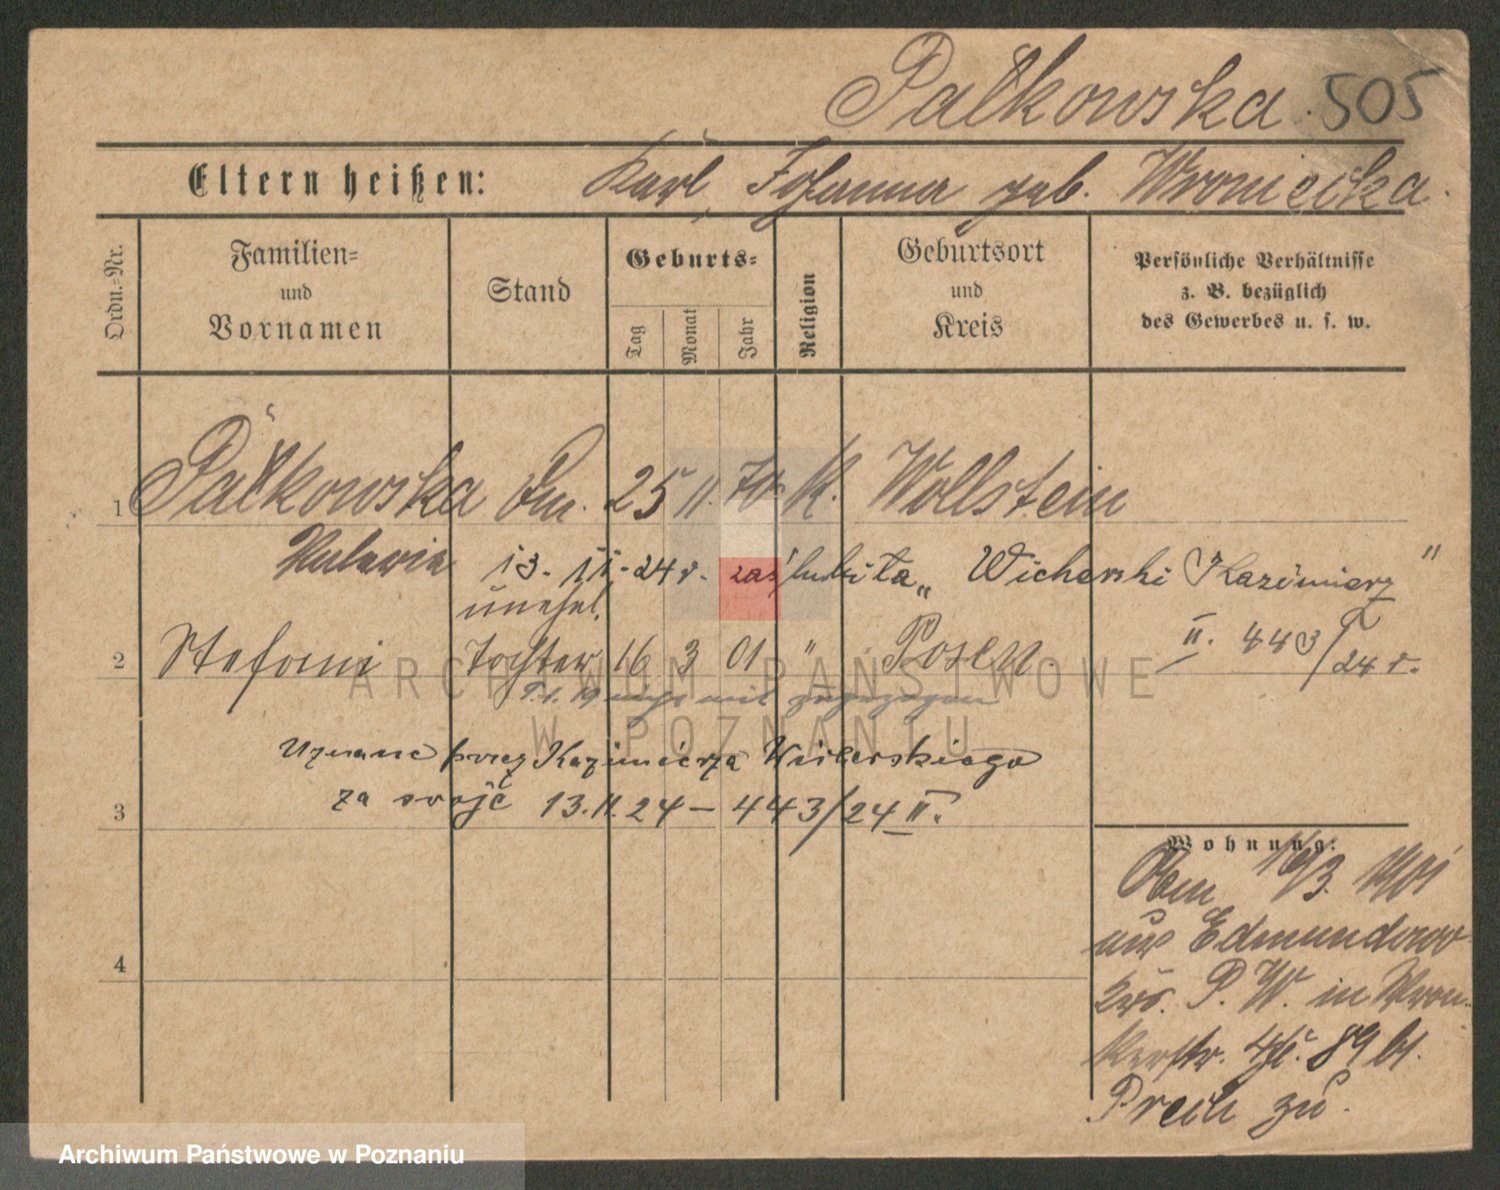 Pałkowska. 505
Eltern heißen: Karl, Johanna geb. Wroniecka.
Ordn.-Nr. Familien- und Vornamen Stand Geburts- Tag Monat Jahr Religion Geburtsort und Kreis Persönliche Verhältnisse z. B. bezüglich des Gewerbes u. s. w.
1 Pałkowska 25 11. 70 K. Wollstein
Valeria 13. II. 24 r. zaślubiła „Wicherski Kazimierz"
unehel. II. 443/24 r.
2 Stefani Tochter 16 3 01 " Posen.
mit zugezogen
Uznane przez Kazimierza Wicherskiego
3 za swoje 13. II. 24 – 443/24 II.
Wohnung:
16/3. 1901
aus Edmundowo
Krs. P. W. in Wron-
kerstr. 4 II. 89 bt.
zu.
4
ARCHIWUM PAŃSTWOWE
W POZNANIU
Archiwum Państwowe w Poznaniu